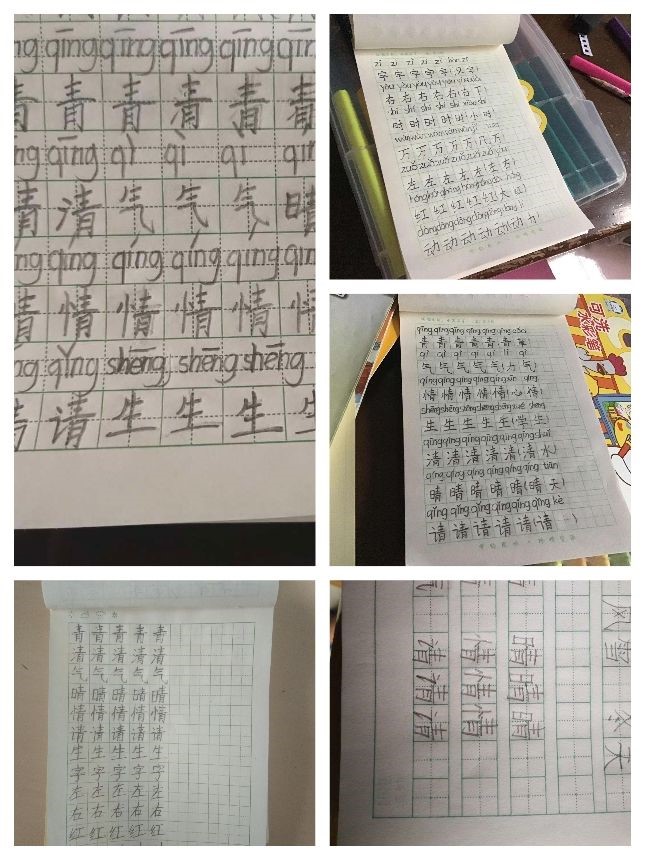 qīng qīng qīng qīng
青 青 青 青 青
qīng qì qì qì
清 气 气 气 晴
qíng qíng qíng qíng
情 情 情 情
qǐng shēng shēng shēng
请 生 生 生
zì zì zì zì zì
字 字 字 字 字
yòu yòu yòu yòu yòu yòu xià
右 右 右 右 右(右下)
shí shí shí shí shí xiǎo shí
时 时 时 时 时(小时)
wàn wàn wàn wàn wàn
万 万 万 万 万
zuǒ zuǒ zuǒ zuǒ zuǒ zuǒ yòu
左 左 左 左 左(左右)
hóng hóng hóng hóng hóng hóng
红 红 红 红 红(大红)
dòng dòng dòng dòng dòng
动 动 动 动 动(动力)
qīng qīng qīng qīng qīng qīng cǎo
青 青 青 青 青(青草)
qì qì qì qì qì lì qì
气 气 气 气 气(力气)
qíng qíng qíng qíng qíng xīn qíng
情 情 情 情 情(心情)
shēng shēng shēng shēng shēng xué shēng
生 生 生 生 生(学生)
qīng qīng qīng qīng qīng qīng shuǐ
清 清 清 清 清(清水)
qíng qíng qíng qíng qíng qíng tiān
晴 晴 晴 晴 晴(晴天)
qǐng qǐng qǐng qǐng qǐng qǐng kè
请 请 请 请 请(请 )
青 青 青 青 青
清 清 清 清 清
气 气 气 气 气
晴 晴 晴 晴 晴
情 情 情 情 情
请 请 请 请 请
生 生 生 生 生
字 字 字 字 字
左 左 左 左 左
右 右 右 右 右
红 红 红 红 红
晴 晴 晴
情 情 情
请 请 请
可洗
水彩笔